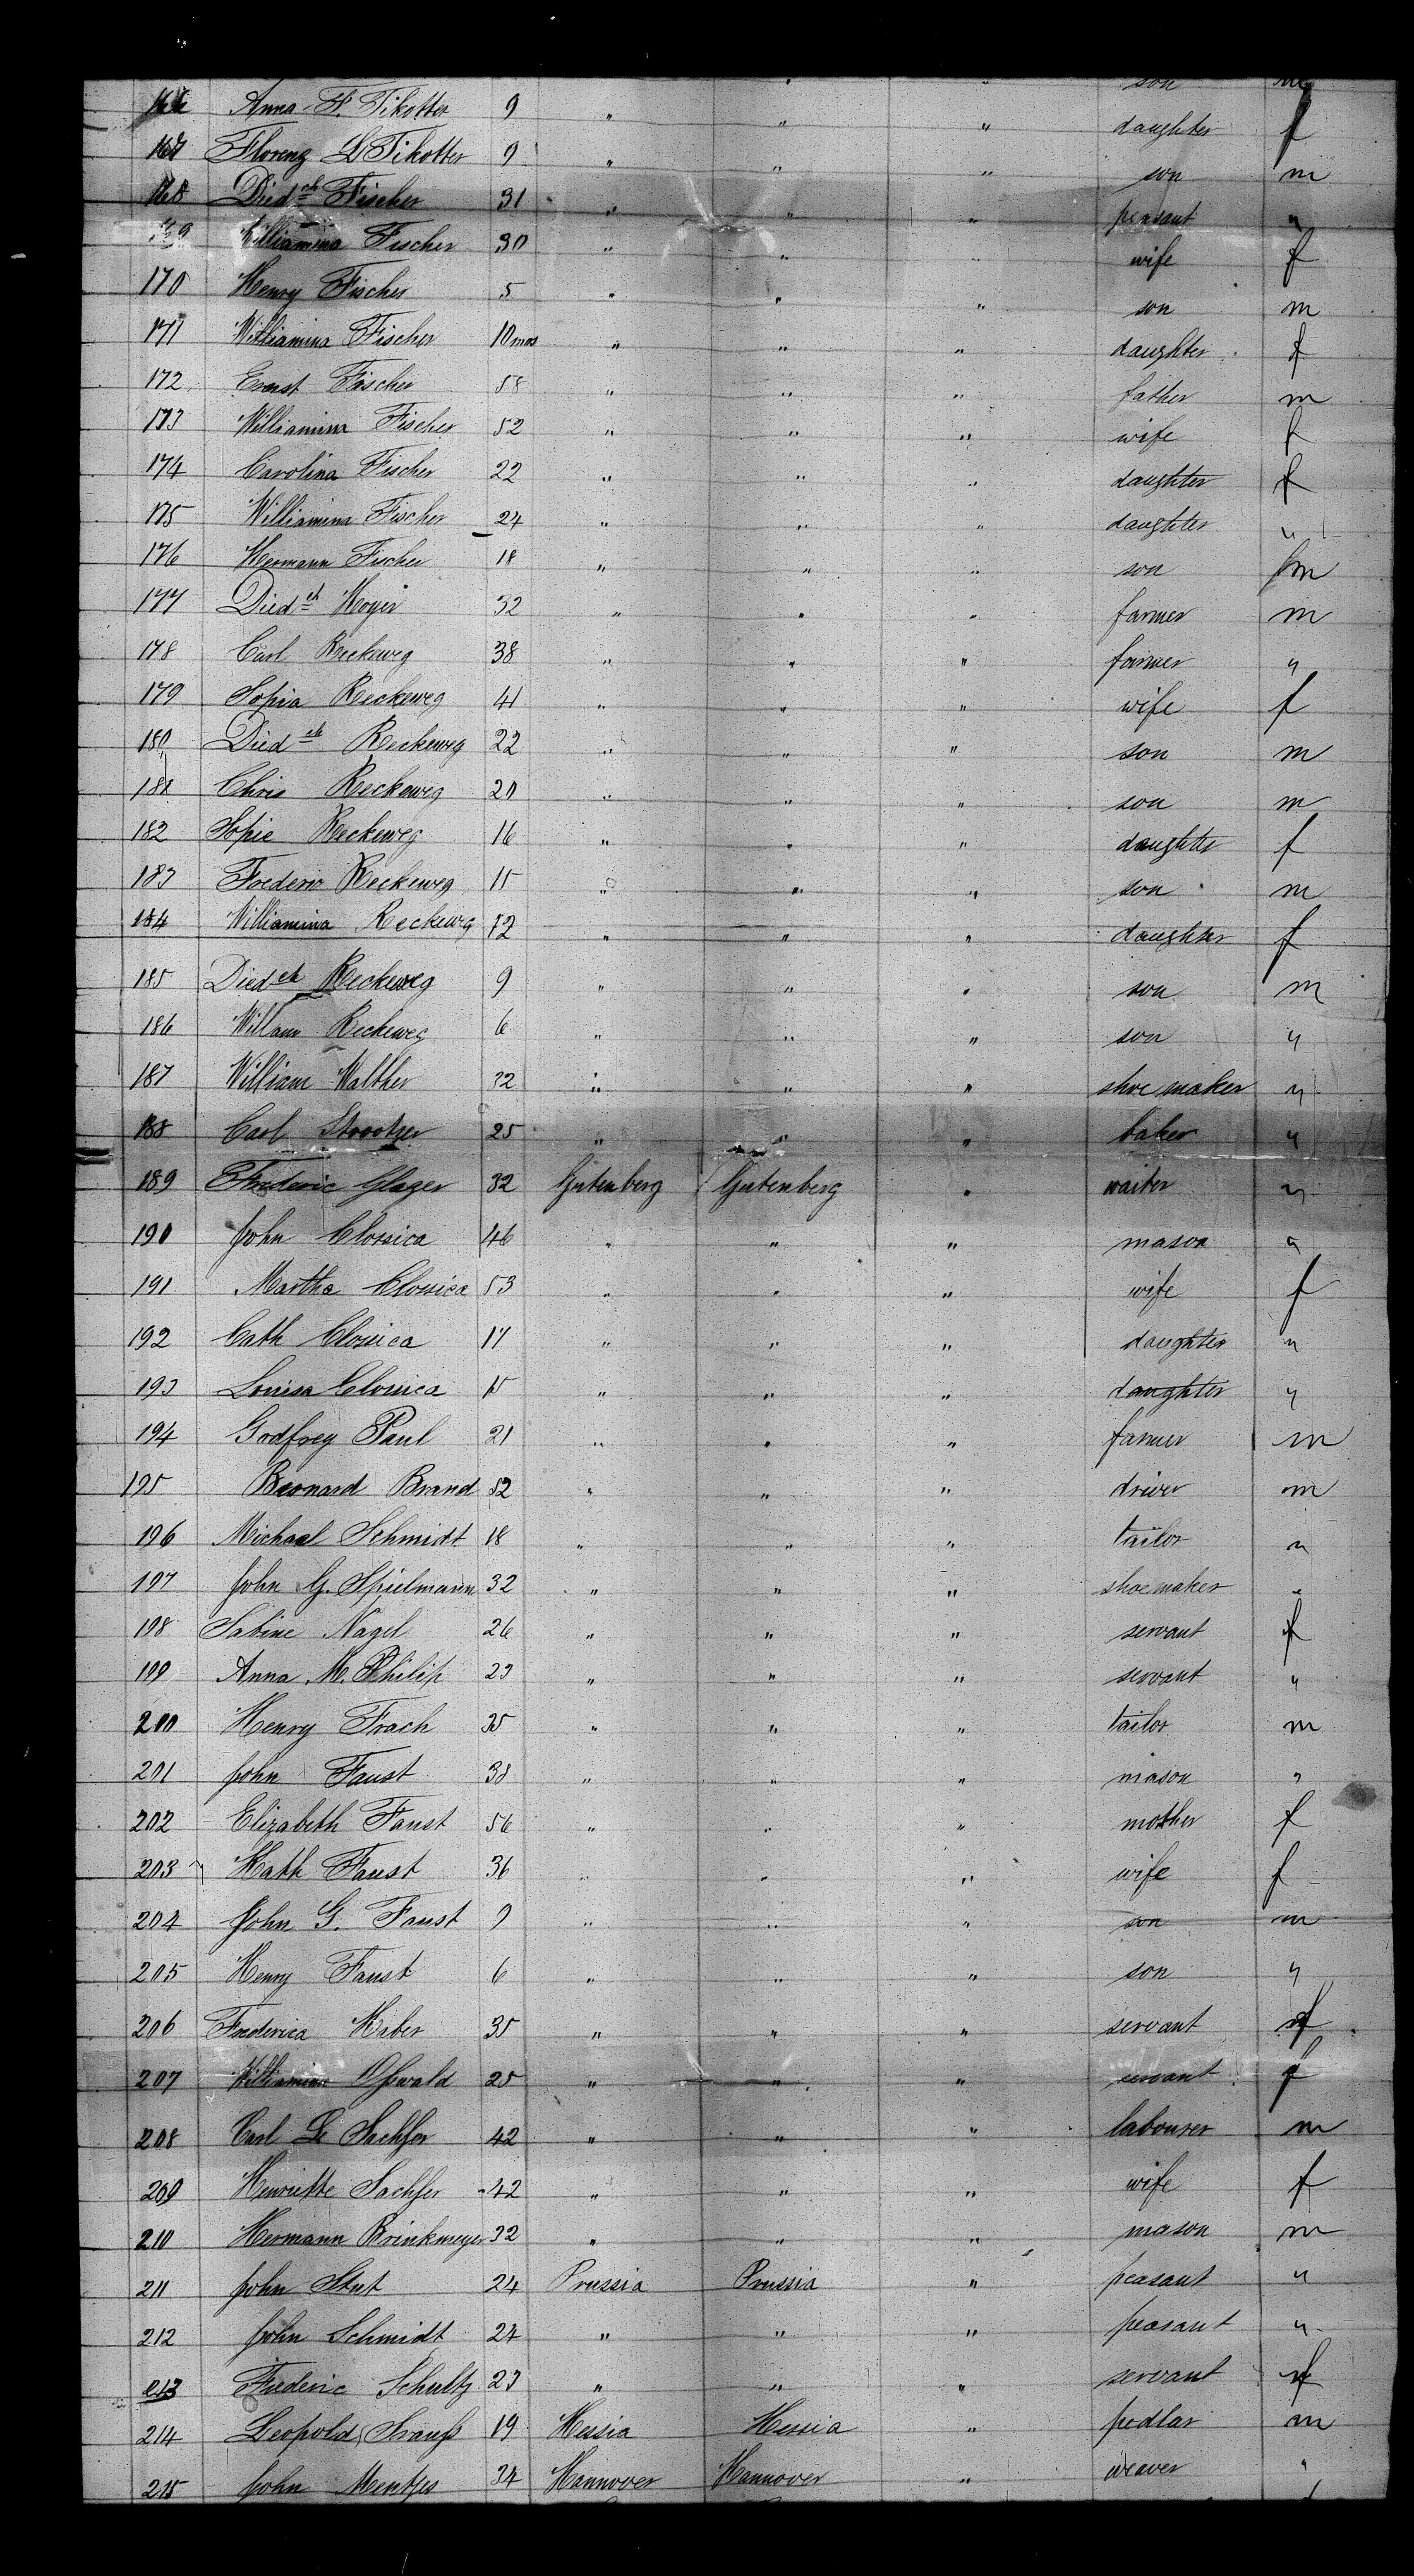 son m
166 Anna F. Tikotter 9 " " " daughter f
167 Florenz L Tikotter 9 " " " son m
168 Died ch Fischer 31 " " " peasant "
169 Williamina Fischer 30 " " " wife f
170 Henry Fischer 5 " " " son m
171 Williamina Fischer 10 mos " " " daughter f
172 Ernst Fischer 58 " " " father m
173 Williamina Fischer 52 " " " wife f
174 Carolina Fischer 22 " " " daughter f
175 Williamina Fischer 24 " " " daughter "
176 Hermann Fischer 18 " " " son m
177 Died ch Moyer 32 " " " farmer m
178 Carl Reckeweg 38 " " " farmer "
179 Sopia Reckeweg 41 " " " wife f
180 Died ch Reckeweg 22 " " " son m
181 Chris Reckeweg 20 " " " son m
182 Sopie Reckeweg 16 " " " daughter f
183 Frederic Reckeweg 15 " " " son m
184 Williamina Reckeweg 12 " " " daughter f
185 Died ch Reckeweg 9 " " " son m
186 Willam Reckeweg 6 " " " son "
187 William Walther 32 " " " shoe maker "
188 Carl 25 " " " baker "
189 Frederic Glazer 32 Gutenberg Gutenberg " waiter "
190 John Clossica 46 " " " mason "
191 Martha Clossica 53 " " " wife f
192 Cath Clossica 17 " " " daughter "
193 Louisa Clossica 15 " " " daughter "
194 Godfrey Paul 21 " " " farmer m
195 Bernard Brand 52 " " " driver m
196 Michael Schmidt 18 " " " tailor "
197 John G. Spielmann 32 " " " shoemaker "
198 Sabine Nagel 26 " " " servant f
199 Anna M. Philip 23 " " " servant "
200 Henry Frach 35 " " " tailor m
201 John Faust 38 " " " mason "
202 Elizabeth Faust 56 " " " mother f
203 Kath Faust 36 " " " wife f
204 John G. Faust 9 " " " son m
205 Henry Faust 6 " " " son "
206 Frederica Kaber 35 " " " servant f
207 Williamina Oswald 25 " " " servant f
208 Carl L Sachser 42 " " " labourer m
209 Henriette Sachser 42 " " " wife f
210 Hermann Brinkmeyer 32 " " " mason m
211 John Stut 24 Prussia Prussia " peasant "
212 John Schmidt 24 " " " peasant "
213 Frederic Schultz 23 " " " servant f
214 Leopold Strauss 19 Hessia Hessia " pedlar m
215 John Mentzer 34 Hannover Hannover " weaver "